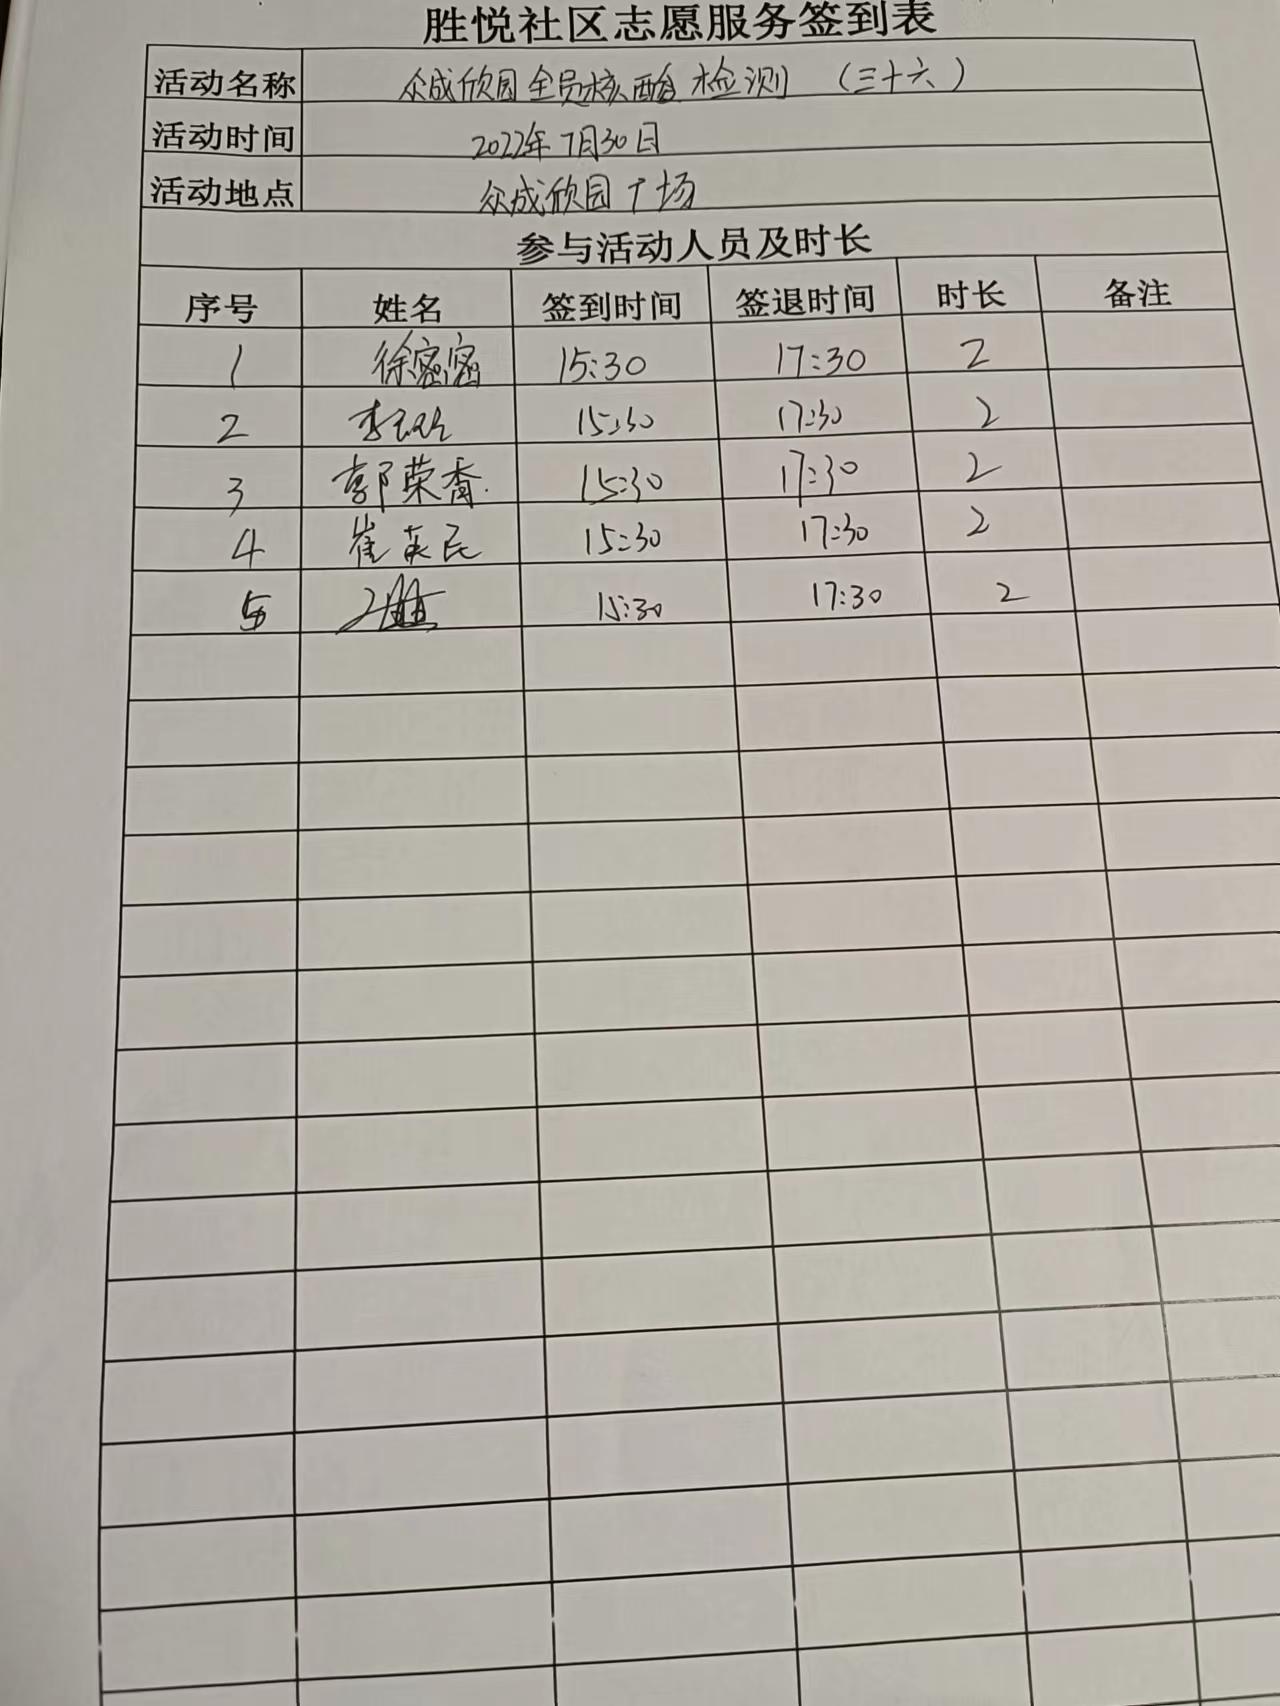 胜悦社区志愿服务签到表
活动名称 众成欣园全员核酸检测 (三十六)
活动时间 2022年7月30日
活动地点 众成欣园广场
参与活动人员及时长
序号 姓名 签到时间 签退时间 时长 备注
1 徐密密 15:30 17:30 2
2 李 15:30 17:30 2
3 郭荣香 15:30 17:30 2
4 崔英民 15:30 17:30 2
5 15:30 17:30 2